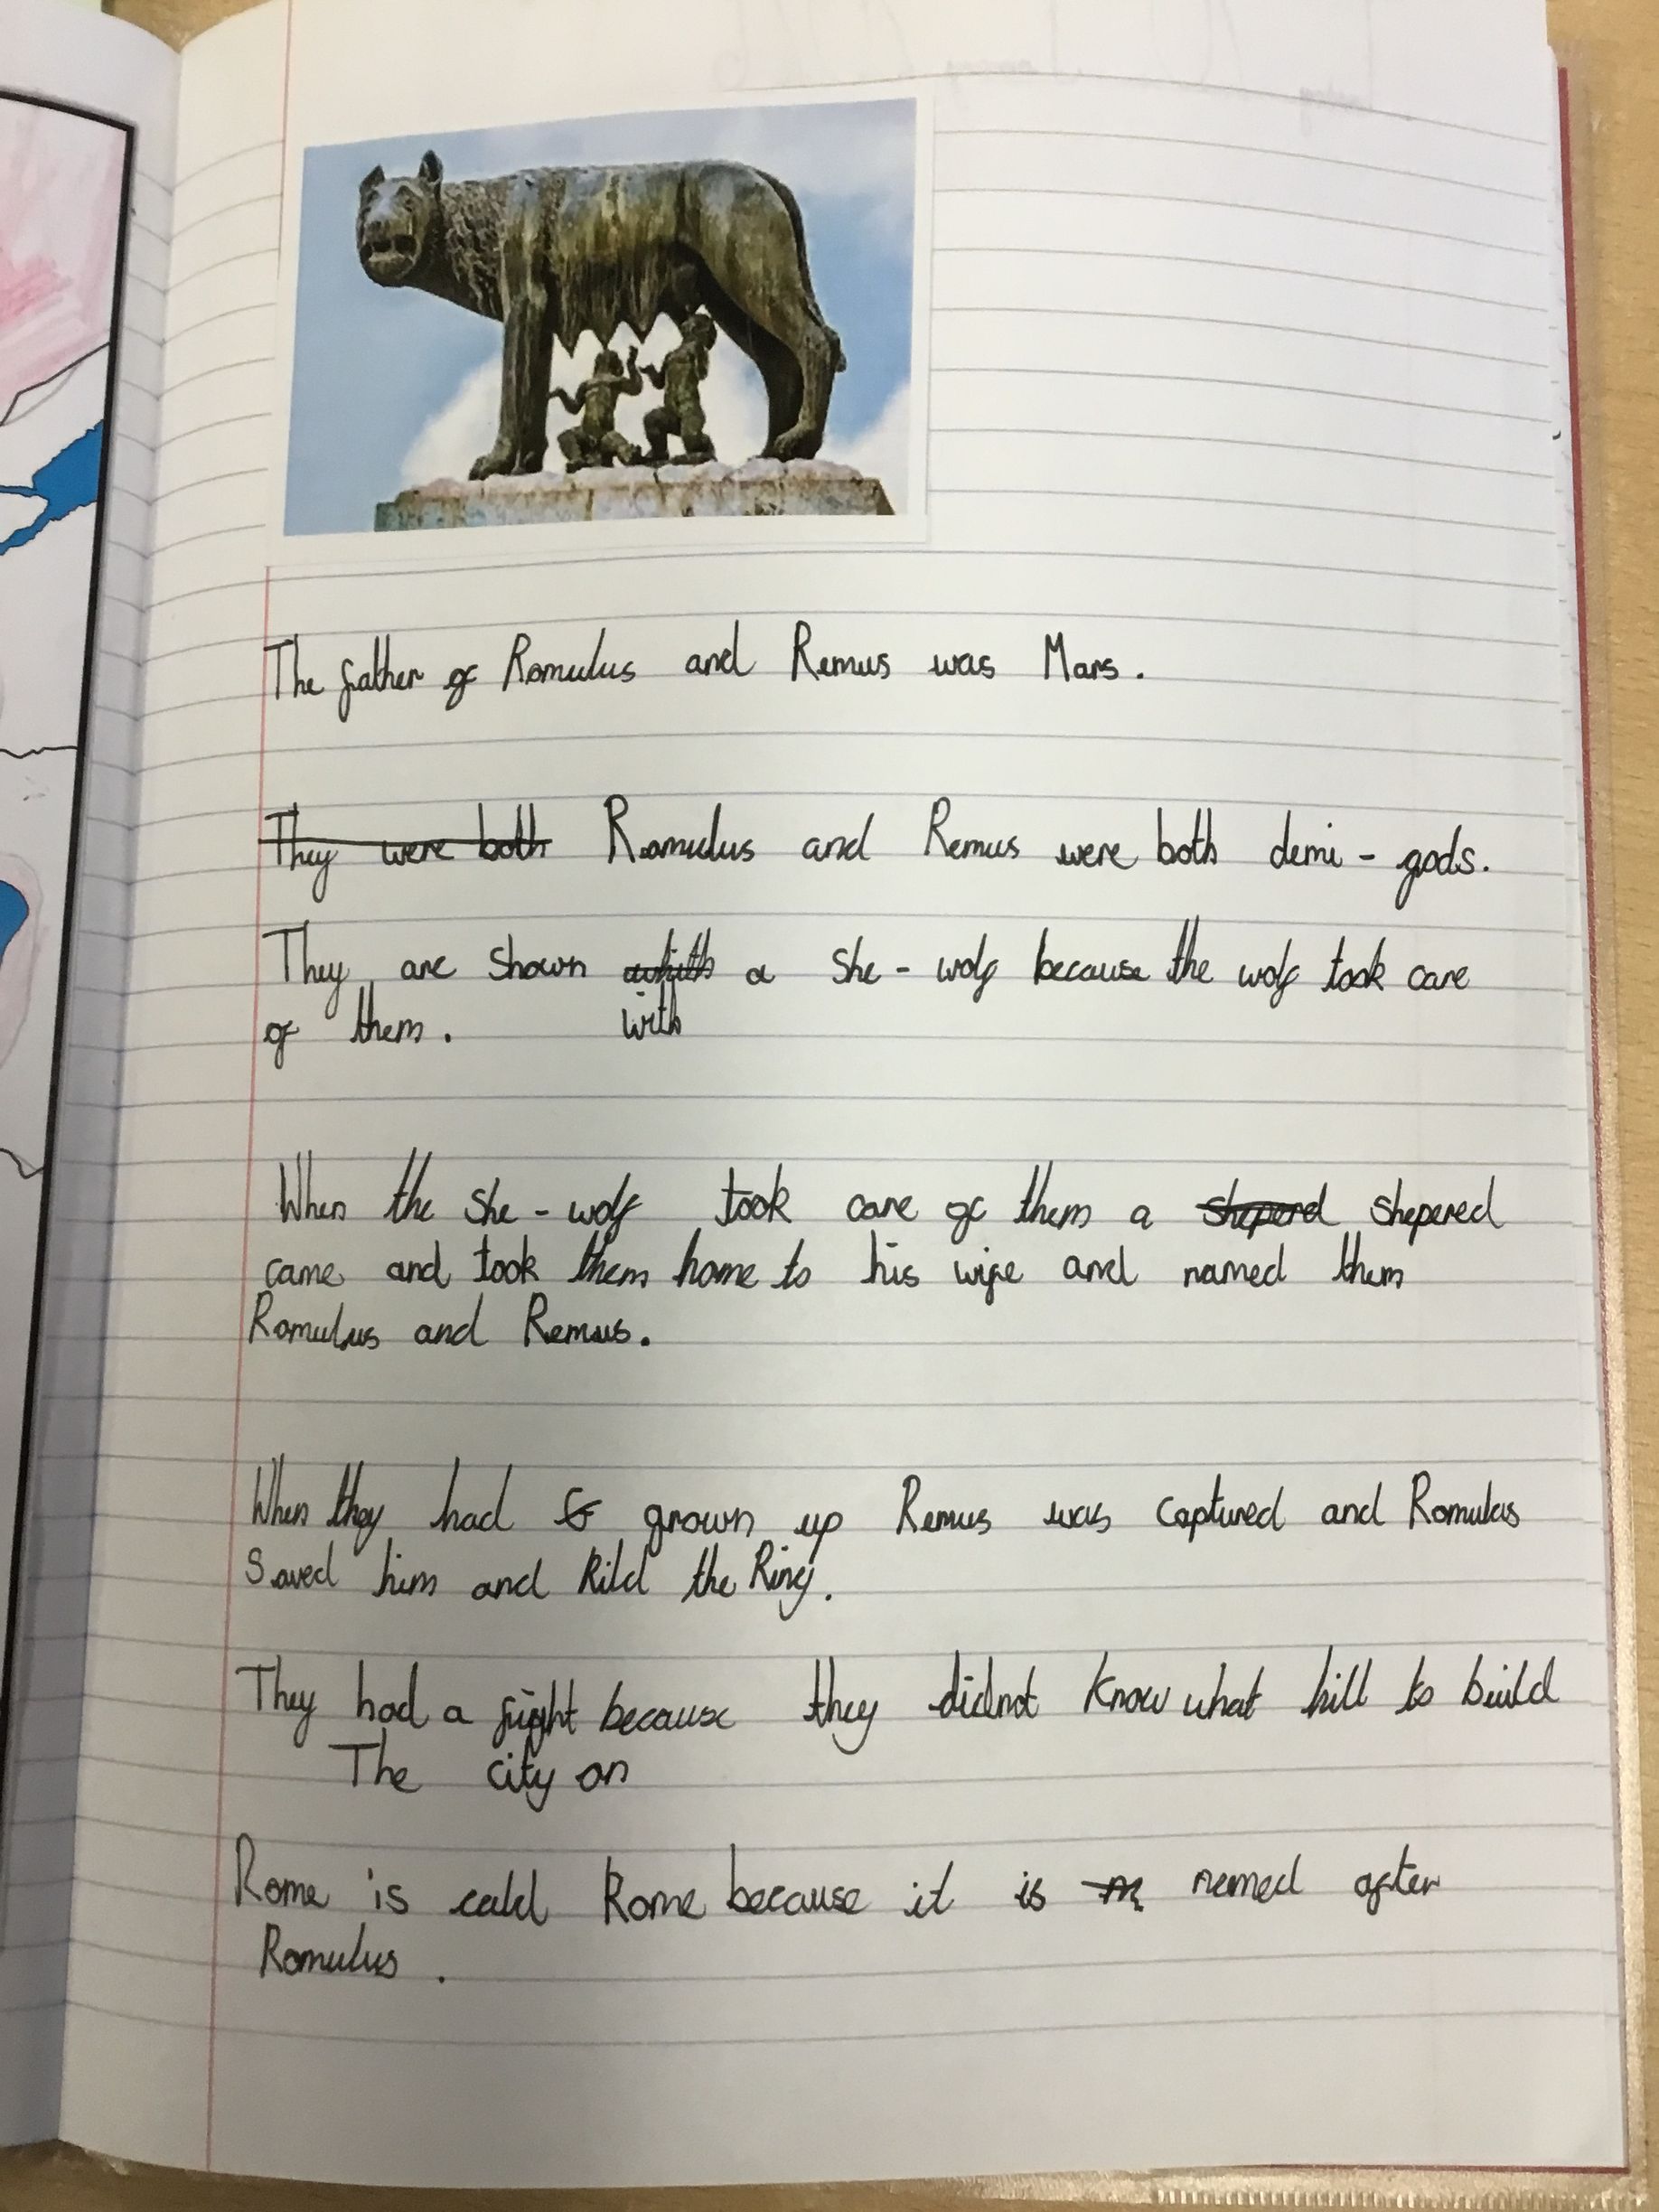 The father of Romulus and Remus was Mars.
They were both Romulus and Remus were both demi - gods.
They are shown a she - wolf because the wolf took care
of them. with
When the she - wolf took care of them a sheperd shepered
came and took them home to his wife and named them
Romulus and Remus.
When they had grown up Remus was captured and Romulus
saved him and kild the king.
They had a fight because they didnot know what hill to build
The city on
Rome is calld Rome because it is nemed after
Romulus.